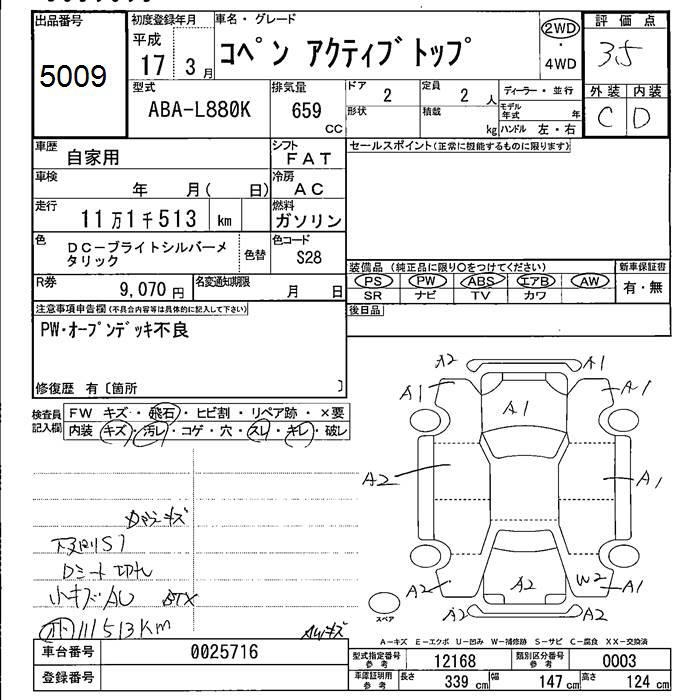 出品番号 初度登録年月 車名・グレード 評価点
5009 平成 17 3月 コペン アクティブトップ 2WD・4WD 3.5
外装 内装
C D
型式 排気量 ドア 定員 ディーラー・並行
ABA-L880K 659 CC 2 2人
形状 積載 kg モデル年式 年
ハンドル 左・右
車歴 自家用 シフト FAT セールスポイント(正常に機能するものに限ります)
車検 年 月( 日) 冷房 AC
走行 11万1千513 km 燃料 ガソリン
色 DC-ブライトシルバーメタリック 色替 色コード S28
装備品 (純正品に限り○をつけてください) 新車保証書
PS PW ABS エアB AW 有・無
SR ナビ TV カワ
R券 9,070円 名変通知期限 月 日
後日品
注意事項申告欄(不具合内容等は具体的に記入して下さい)
PW・オープンデッキ不良
修復歴 有〔箇所 〕
検査員記入欄
FW キズ・飛石・ヒビ割・リペア跡・×要
内装 キズ・汚レ・コゲ・穴・スレ・キレ・破レ
A2 A1
A1 A1 A1
A2 A1
A2 A2 W2 A1
A2 A2
スペア
下回りS1
Dシート切れ
小キズAU
111513Km
AWキズ
A-キズ E-エクボ U-凹み W-補修跡 S-サビ C-腐食 XX-交換済
車台番号 0025716
登録番号
型式指定番号 参考 12168 類別区分番号 参考 0003
車庫証明用 参考 長さ 339cm 幅 147cm 高さ 124cm